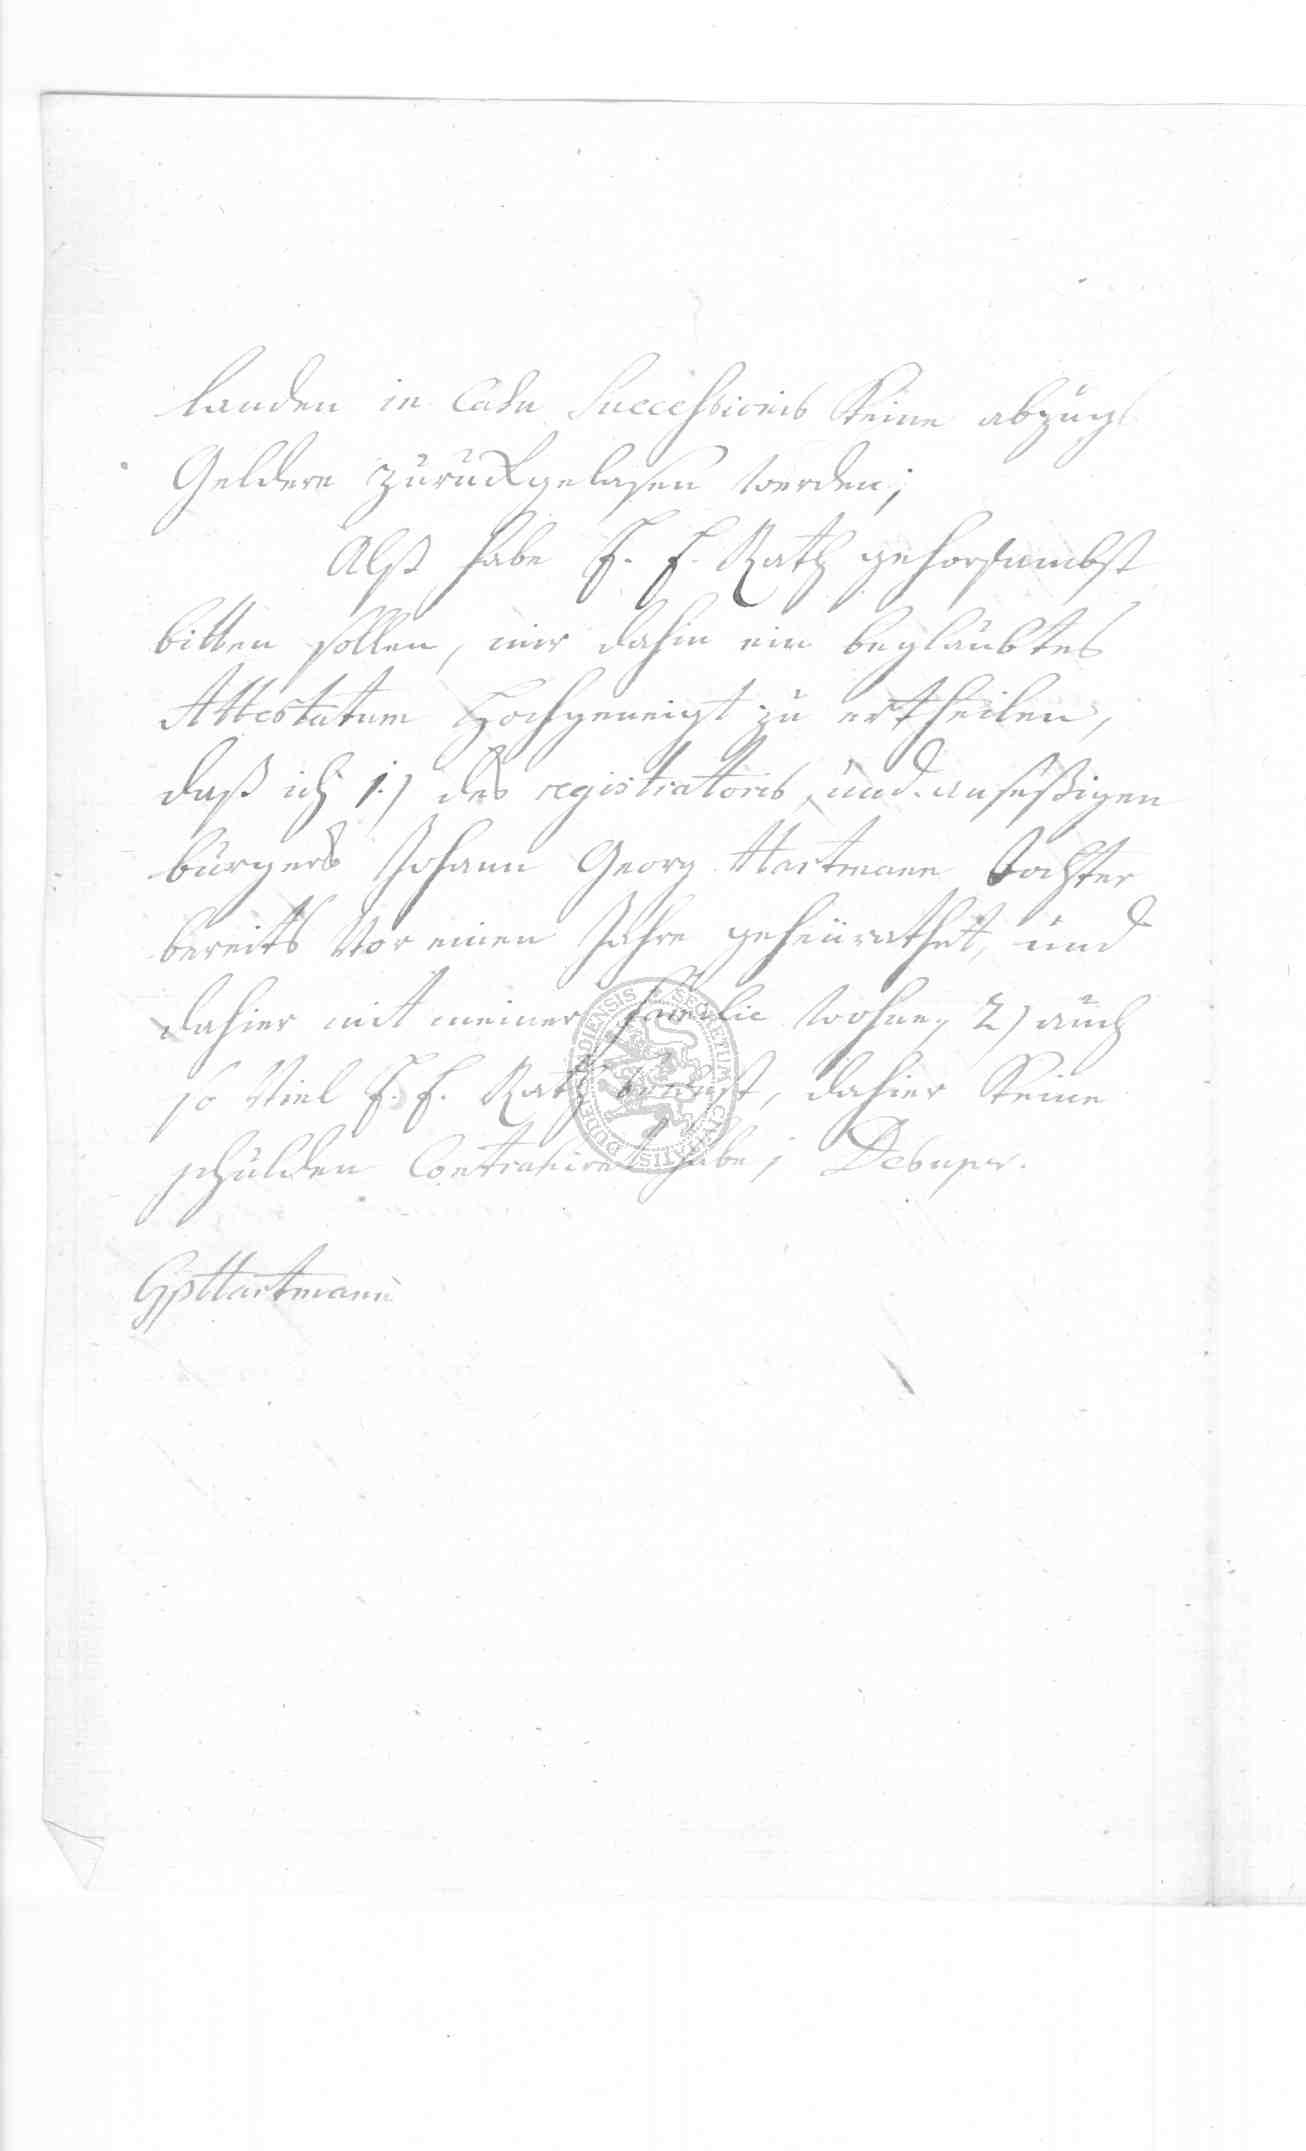 landen in Casu Successionis Keine abzugs
Geldere zurückgelasen werden;
Alß habe E. E. Rath gehorsambst
bitten sollen, mir dahin ein beglaubtes
Attestatum Hochgeneigt zu ertheilen,
daß ich 1.) des registratoris und ansäßigen
bürgers Johann Georg Hartmann Tochter
bereits Vor einen Jahre geheürathet, und
dahier mit meiner familie wohne, 2) auch
so Viel E. E. Rath bewust, dahier Keine
schulden Contrahiret habe;
Hartmann
SECRETUM CIVITATIS